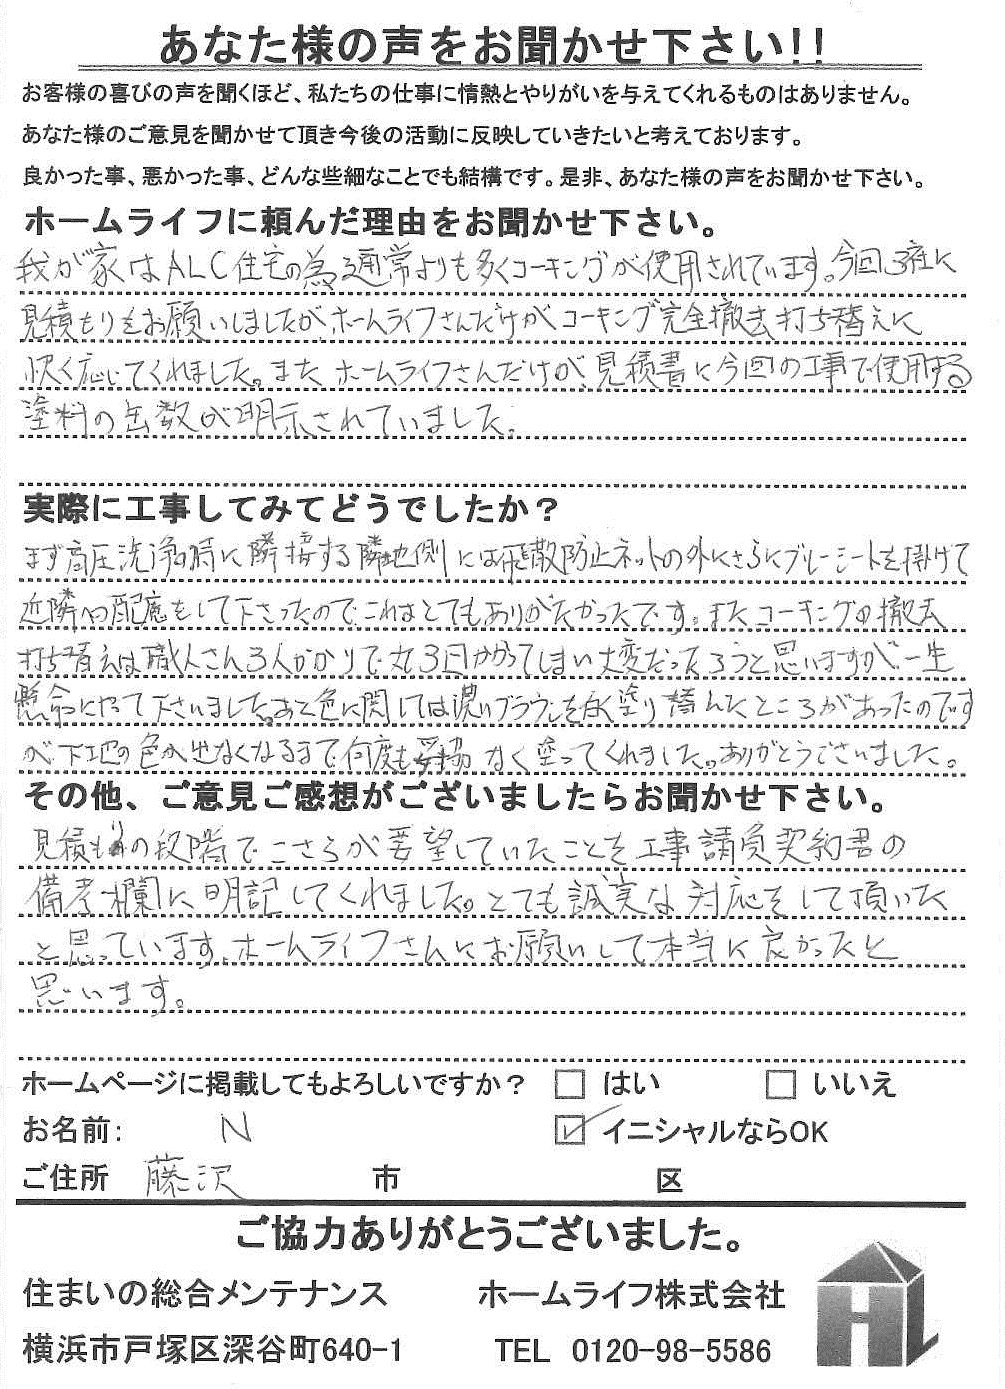 あなた様の声をお聞かせ下さい!!
お客様の喜びの声を聞くほど、私たちの仕事に情熱とやりがいを与えてくれるものはありません。
あなた様のご意見を聞かせて頂き今後の活動に反映していきたいと考えております。
良かった事、悪かった事、どんな些細なことでも結構です。是非、あなた様の声をお聞かせ下さい。
ホームライフに頼んだ理由をお聞かせ下さい。
我が家はALC住宅の為通常よりも多くコーキングが使用されています。今回3社に
見積もりをお願いしましたが、ホームライフさんだけがコーキング完全撤去打ち替えに
快く応じてくれました。また、ホームライフさんだけが、見積書に今回の工事で使用する
塗料の缶数が明示されていました。
実際に工事してみてどうでしたか？
まず高圧洗浄の時に隣接する隣地側には飛散防止ネットの外にさらにブルーシートを掛けて
近隣への配慮をして下さったので、これはとてもありがたかったです。またコーキングの撤去
打ち替えは職人さん3人がかりで丸3日かかってしまい大変だったろうと思いますが、一生
懸命にやって下さいました。あと色に関しては濃いブラウンを白く塗り替えたところがあったのです
が、下地の色が出なくなるまで何度も妥協なく塗ってくれました。ありがとうございました。
その他、ご意見ご感想がございましたらお聞かせ下さい。
見積もりの段階でこちらが要望していたことを工事請負契約書の
備考欄に明記してくれました。とても誠実な対応をして頂いた
と思っています。ホームライフさんにお願いして本当に良かったと
思います。
ホームページに掲載してもよろしいですか？ はい いいえ
お名前： N イニシャルならOK
ご住所 藤沢 市 区
ご協力ありがとうございました。
住まいの総合メンテナンス ホームライフ株式会社
横浜市戸塚区深谷町640-1 TEL 0120-98-5586
HL